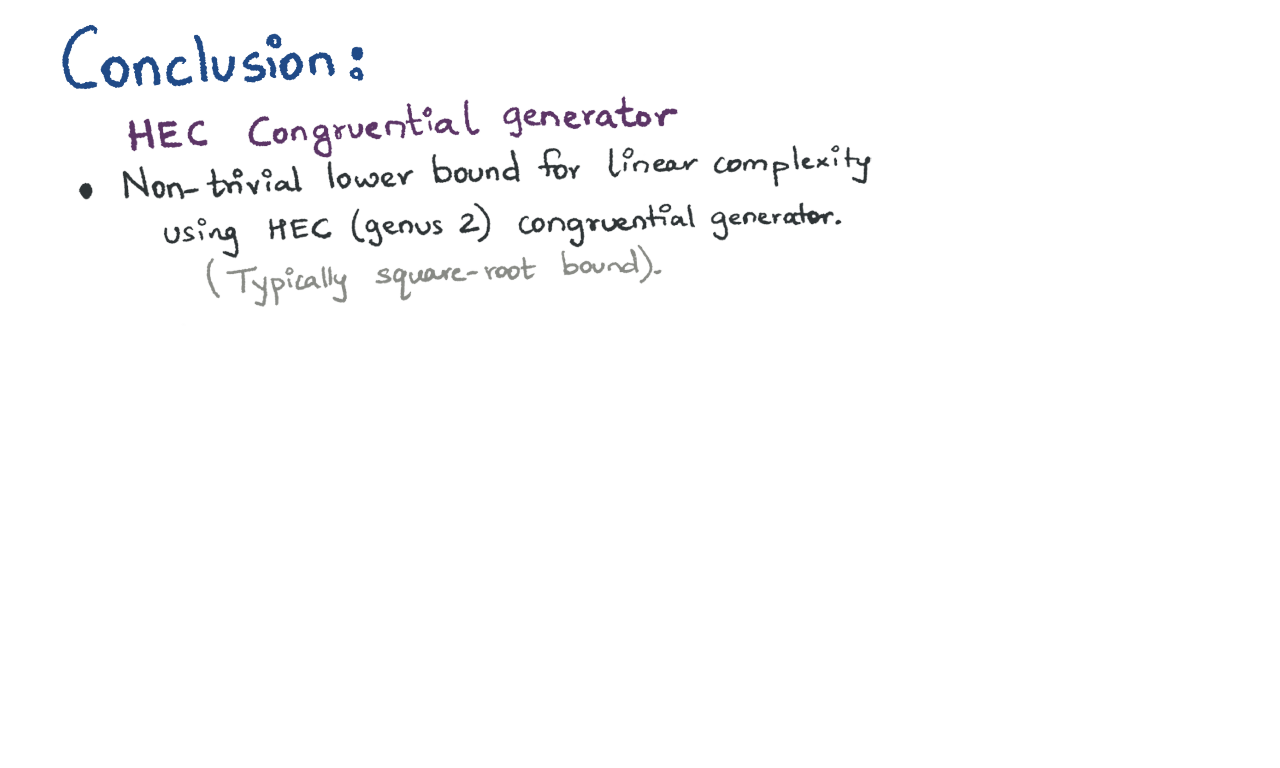 Conclusion:
HEC Congruential generator
• Non-trivial lower bound for linear complexity
using HEC (genus 2) congruential generator.
(Typically square-root bound).